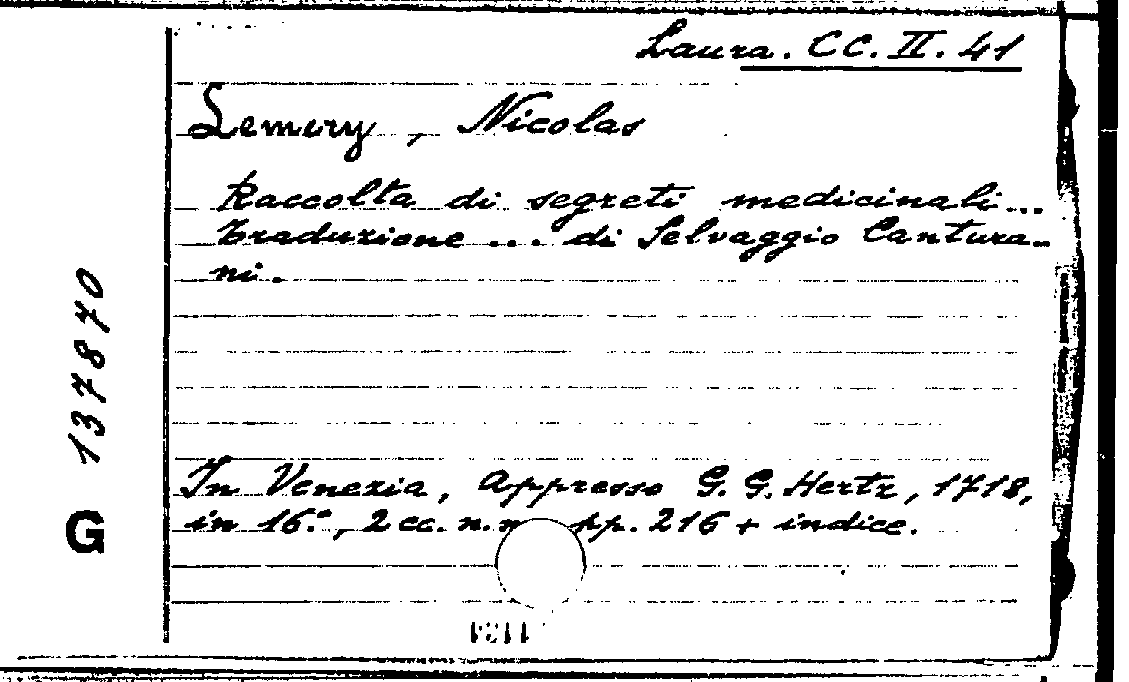 Laura. CC. II. 41
Lemery, Nicolas
Raccolta di segreti medicinali...
Traduzione ... di Selvaggio Cantura-
ni.
In Venezia, Appresso G. G. Hertz, 1718,
in 16.°, 2 cc. n.n. pp. 216 + indice.
G 137870